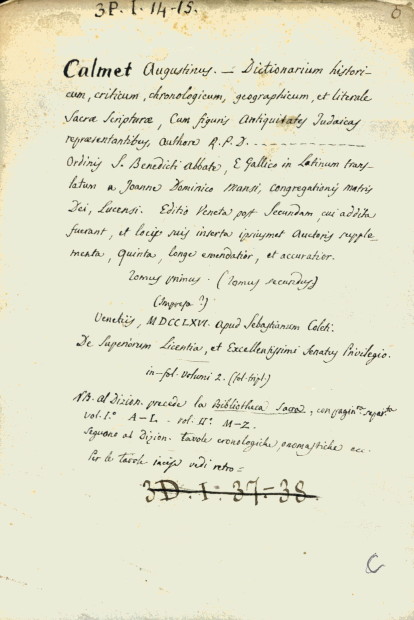 3P. I. 14-15.
Calmet Augustinus. — Dictionarium histori-
cum, criticum, chronologicum, geographicum, et literale
Sacræ Scripturæ, Cum figuris Antiquitates Judaicas
repræsentantibus, authore R. P. D. - - - - - - - - - -
Ordinis S. Benedicti Abbate, E Gallico in Latinum trans
latum a Joanne Dominico Mansi, congregationis matris
Dei, Lucensi. Editio Veneta post Secundam, cui addita
fuerant, et locis suis inserta ipsiusmet Auctoris supple_
menta, Quinta, longe emendatior, et accuratior.
Tomus primus. (Tomus secundus)
(Impresa?)
Venetiis, MDCCLXVI. Apud Sebastianum Coleti.
De Superiorum Licentia, et Excellentissimi Senatus Privilegio.
in-fol. volumi 2. (fol. tripl.)
NB. Al Dizion. precede la Bibliotheca Sacra, con pagin.ne separata
vol. I.º A-L. vol. II.º M-Z.
Seguono al Dizion. tavole cronologiche, onomastiche ecc.
Per le tavole incise vedi retro =
3D. I. 37-38.
C